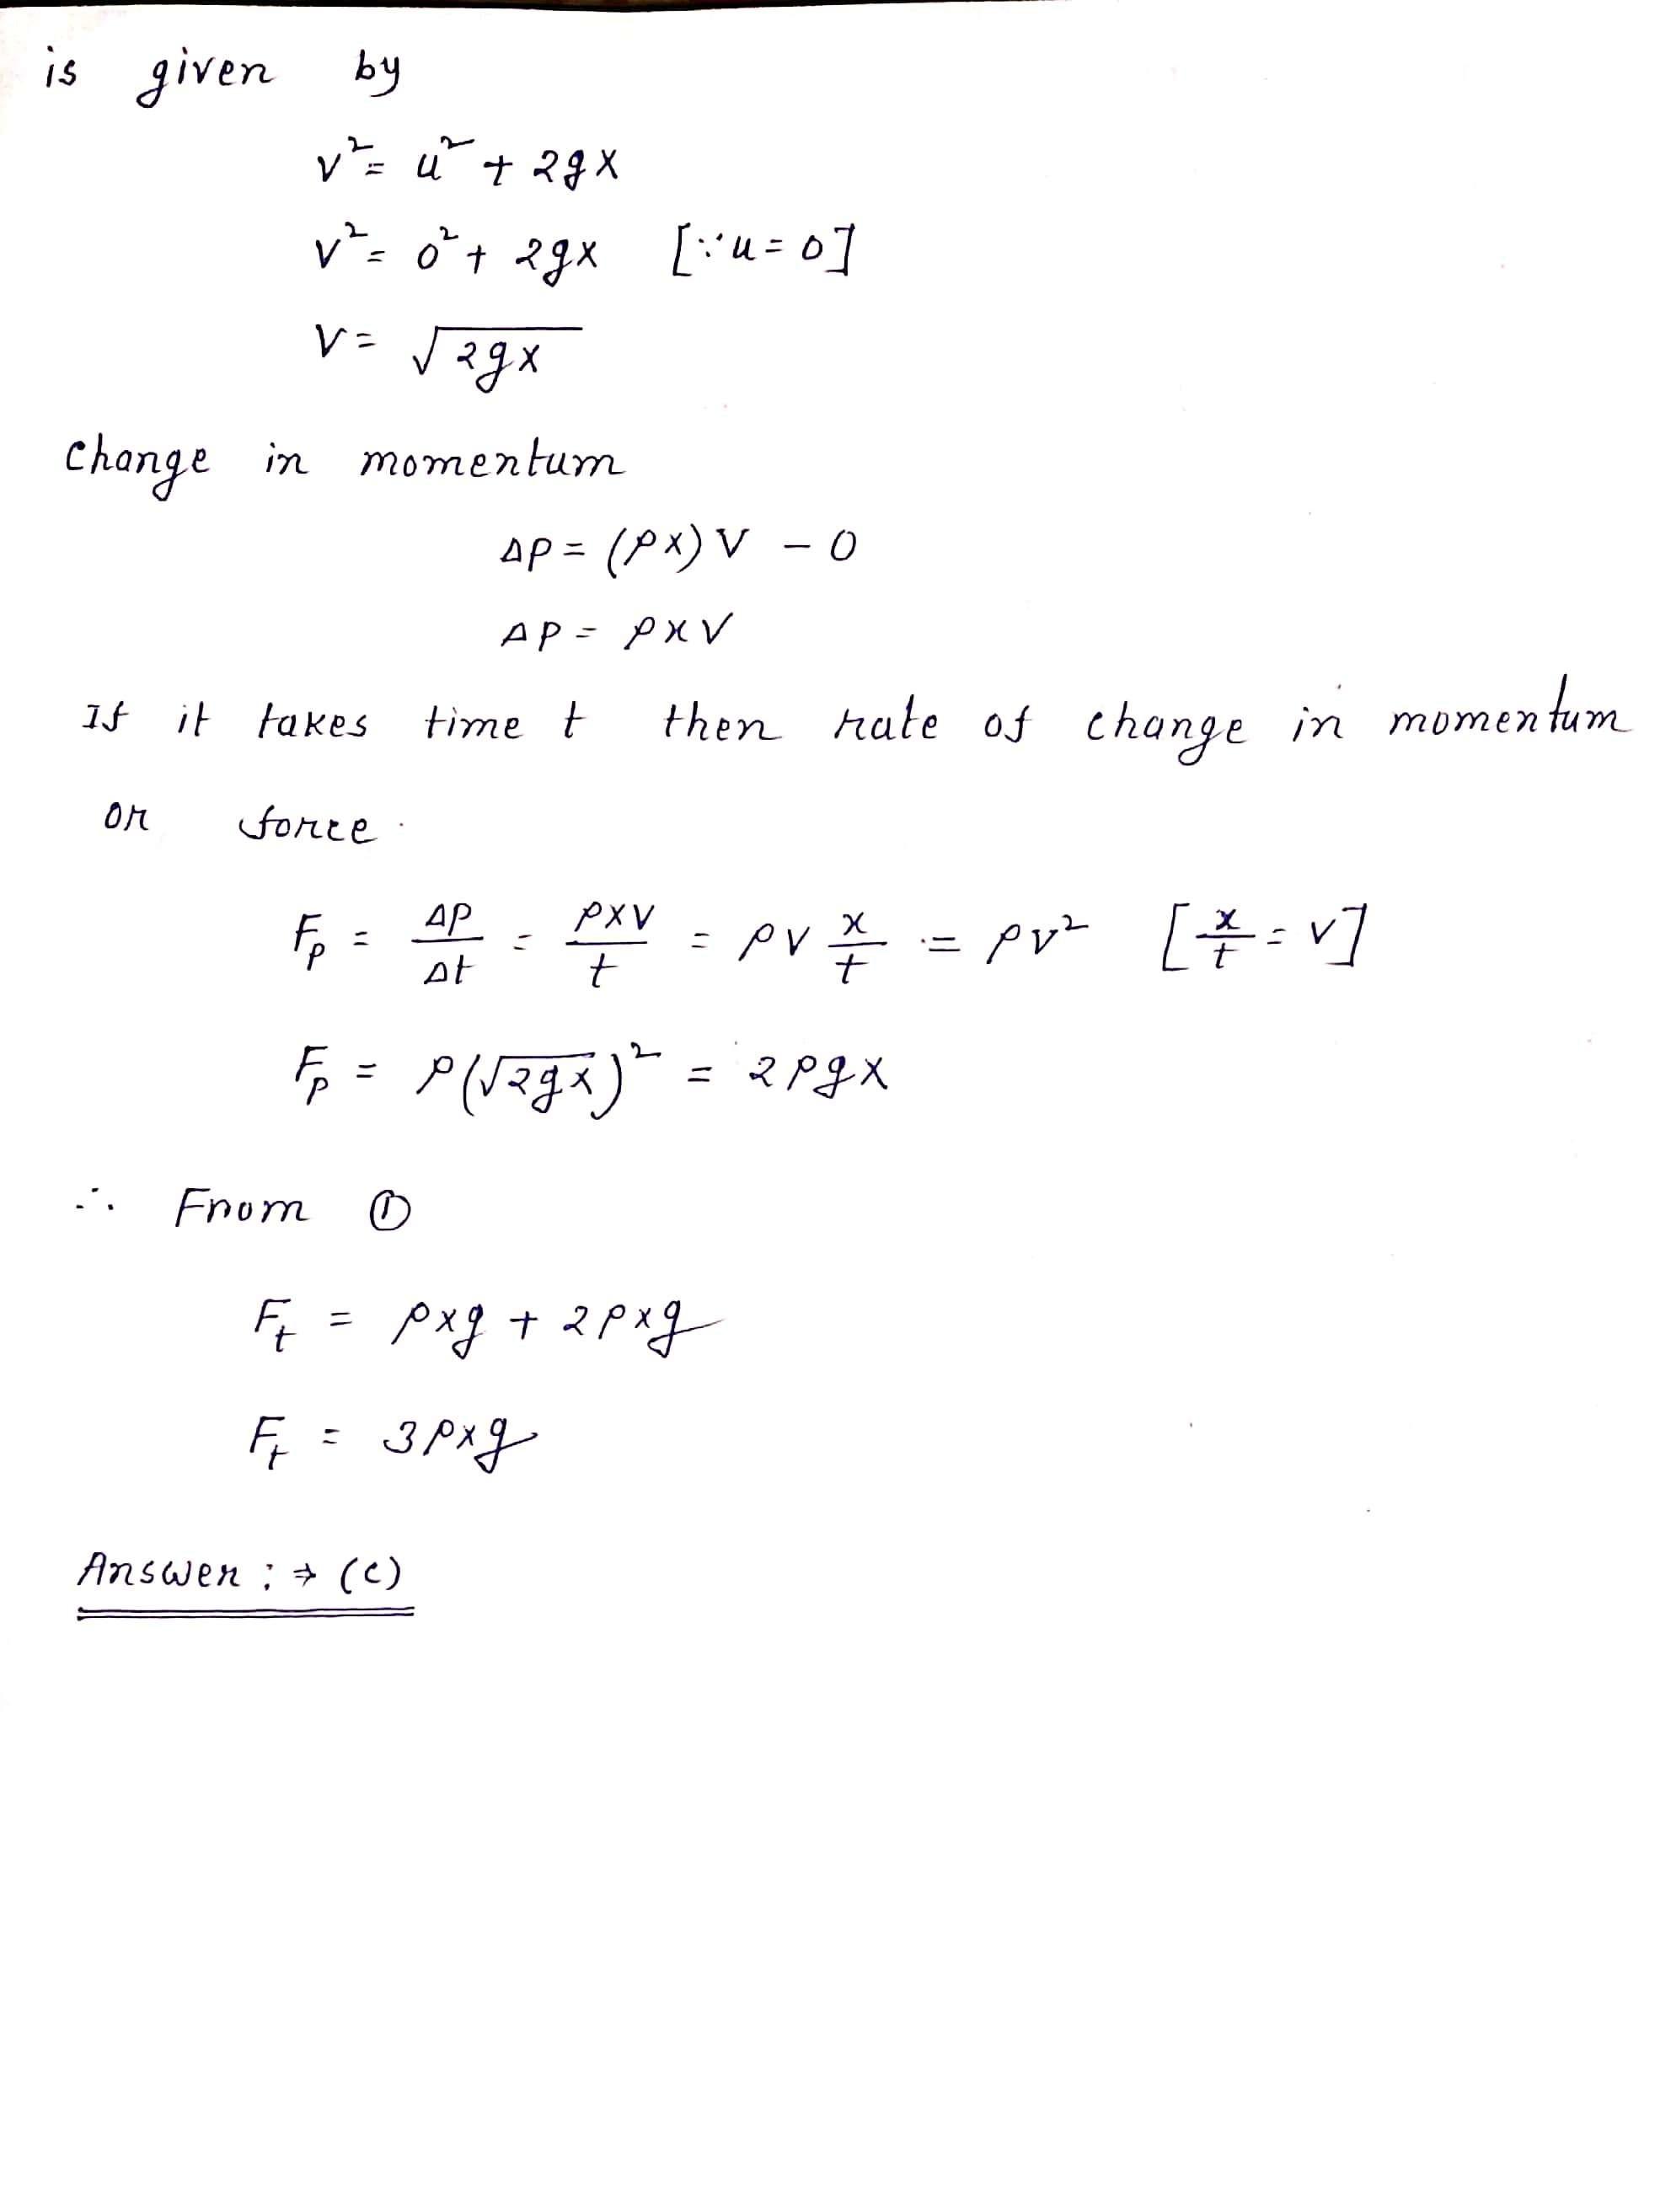 is given by
v² = u² + 2gx
v² = 0² + 2gx [∵ u = 0]
v = √2gx
change in momentum
Δp = (ρx) v - 0
Δp = ρxv
If it takes time t then rate of change in momentum
or force.
Fp = Δp/Δt = ρxv/t = ρv x/t = ρv² [x/t = v]
Fp = ρ(√2gx)² = 2ρgx
∴ From ①
Ft = ρxg + 2ρxg
Ft = 3ρxg
Answer : ⇒ (c)